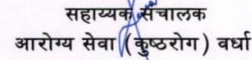 सहाय्यक संचालक
आरोग्य सेवा (कुष्ठरोग) वर्धा